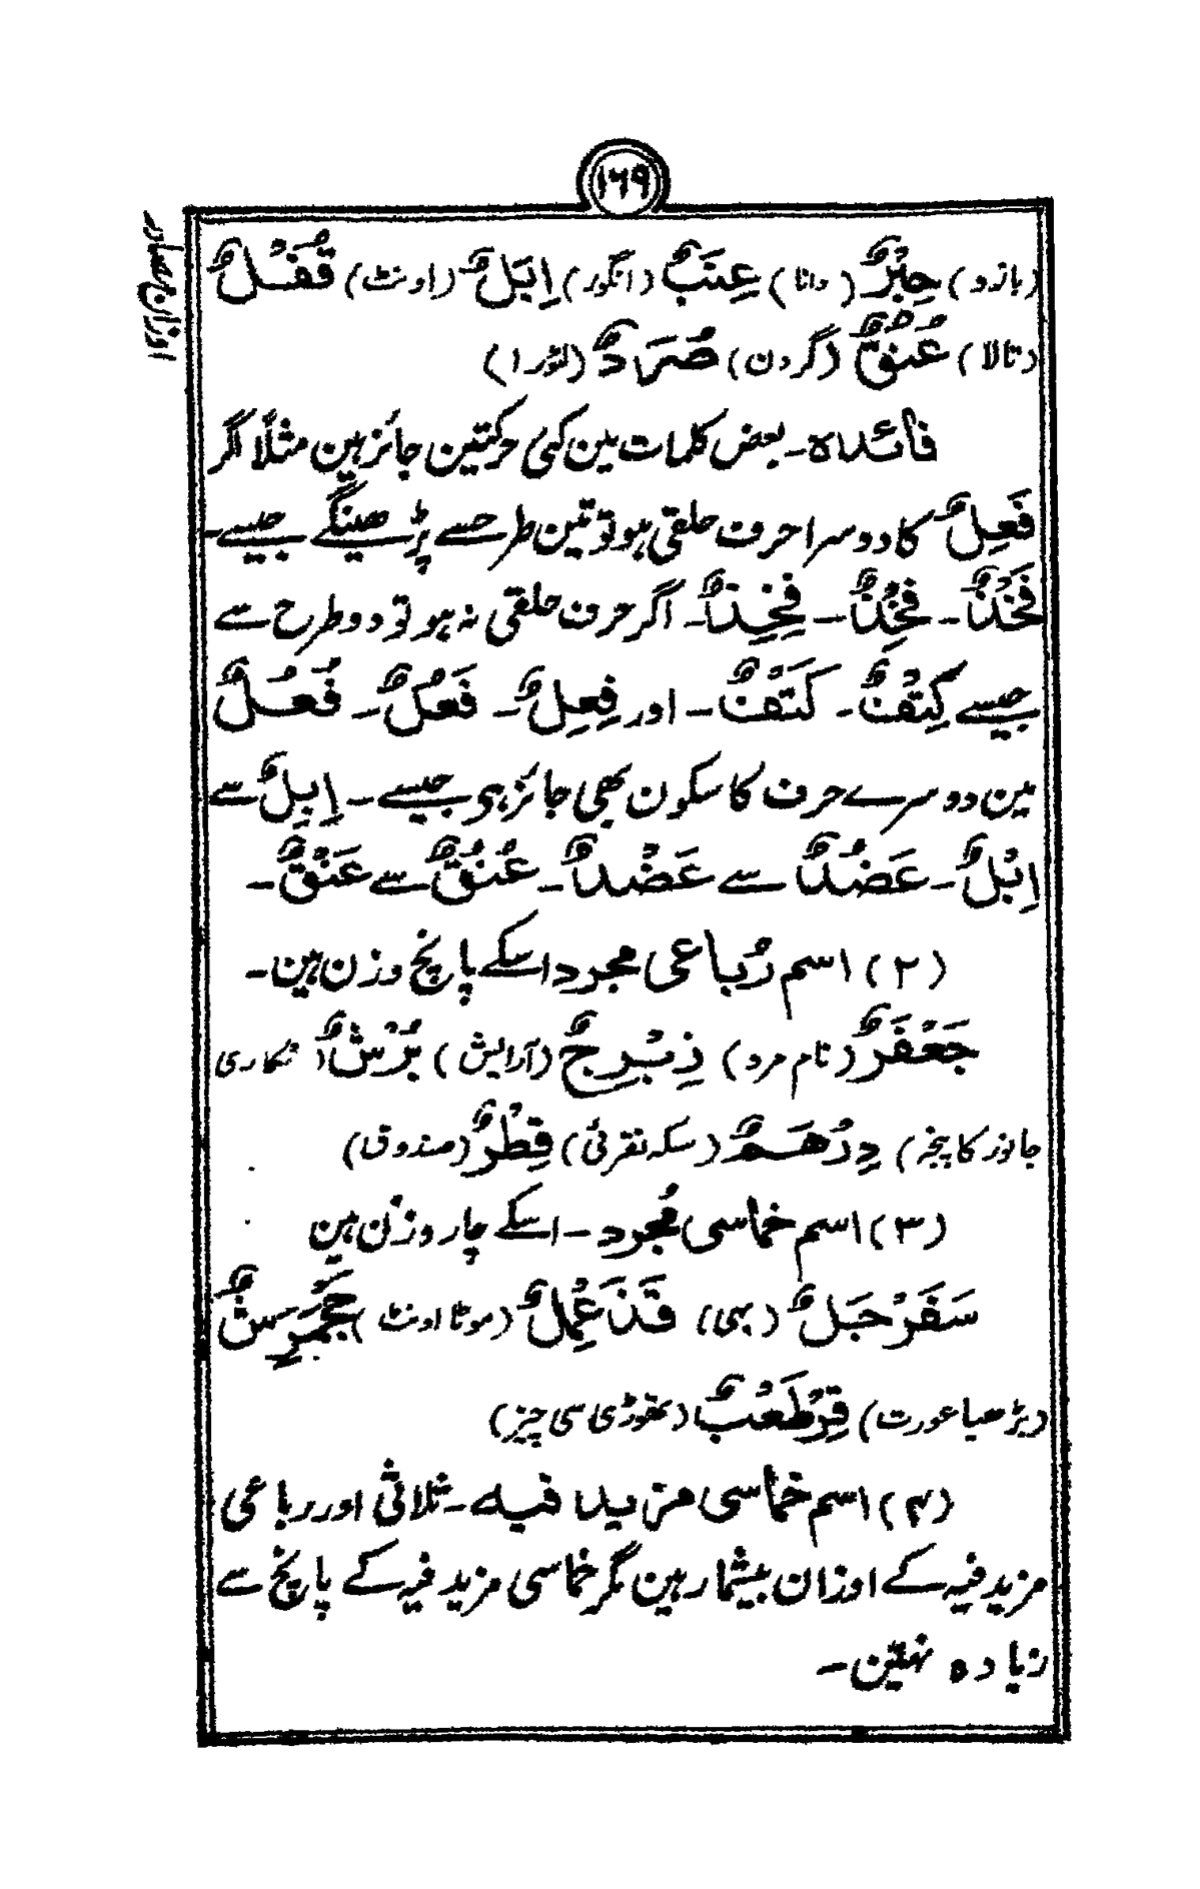 ۱۶۹
اوزان مصادر
(بازو) حِبْرٌ (دانا) عِنَبٌ (انگور) اِبَلٌ (اونٹ) قُفْلٌ
(تالا) عُنُقٌ (گردن) صُرَدٌ (لٹورا)
فائدہ۔ بعض کلمات مین کئی حرکتین جائز ہین مثلاً اگر
فَعِلٌ کا دوسرا حرف حلقی ہو تو تین طرحسے پڑھینگے جیسے۔
فَخْذٌ۔ فِخْذٌ۔ فِخِذٌ۔ اگر حرف حلقی نہ ہو تو دو طرح سے
جیسے کِتْفٌ۔ کَتْفٌ۔ اور فِعِلٌ۔ فَعُلٌ۔ فُعُلٌ
مین دوسرے حرف کا سکون بھی جائز ہی جیسے۔ اِبِلٌ سے
اِبْلٌ۔ عَضُدٌ سے عَضْدٌ۔ عُنُقٌ سے عَنْقٌ۔
(۲) اسم رُباعی مجرد اسکے پانچ وزن ہین۔
جَعْفَرٌ (نام مرد) زِبْرِجٌ (آرایش) بُرْثُنٌ (شکاری
جانور کا پنجہ) دِرْهَمٌ (سکہ نقرئی) قِطْرٌ (صندوق)
(۳) اسم خماسی مُجرد۔ اسکے چار وزن ہین
سَفَرْجَلٌ (بہی) قُذَعْمِلٌ (موٹا اونٹ) جَحْمَرِشٌ
(بڑھیا عورت) قِرْطَعْبٌ (تھوڑی سی چیز)
(۴) اسم خماسی مزید فیہ۔ ثلاثی اور رباعی
مزید فیہ کے اوزان بیشمار ہین مگر خماسی مزید فیہ کے پانچ سے
زیادہ نہین۔